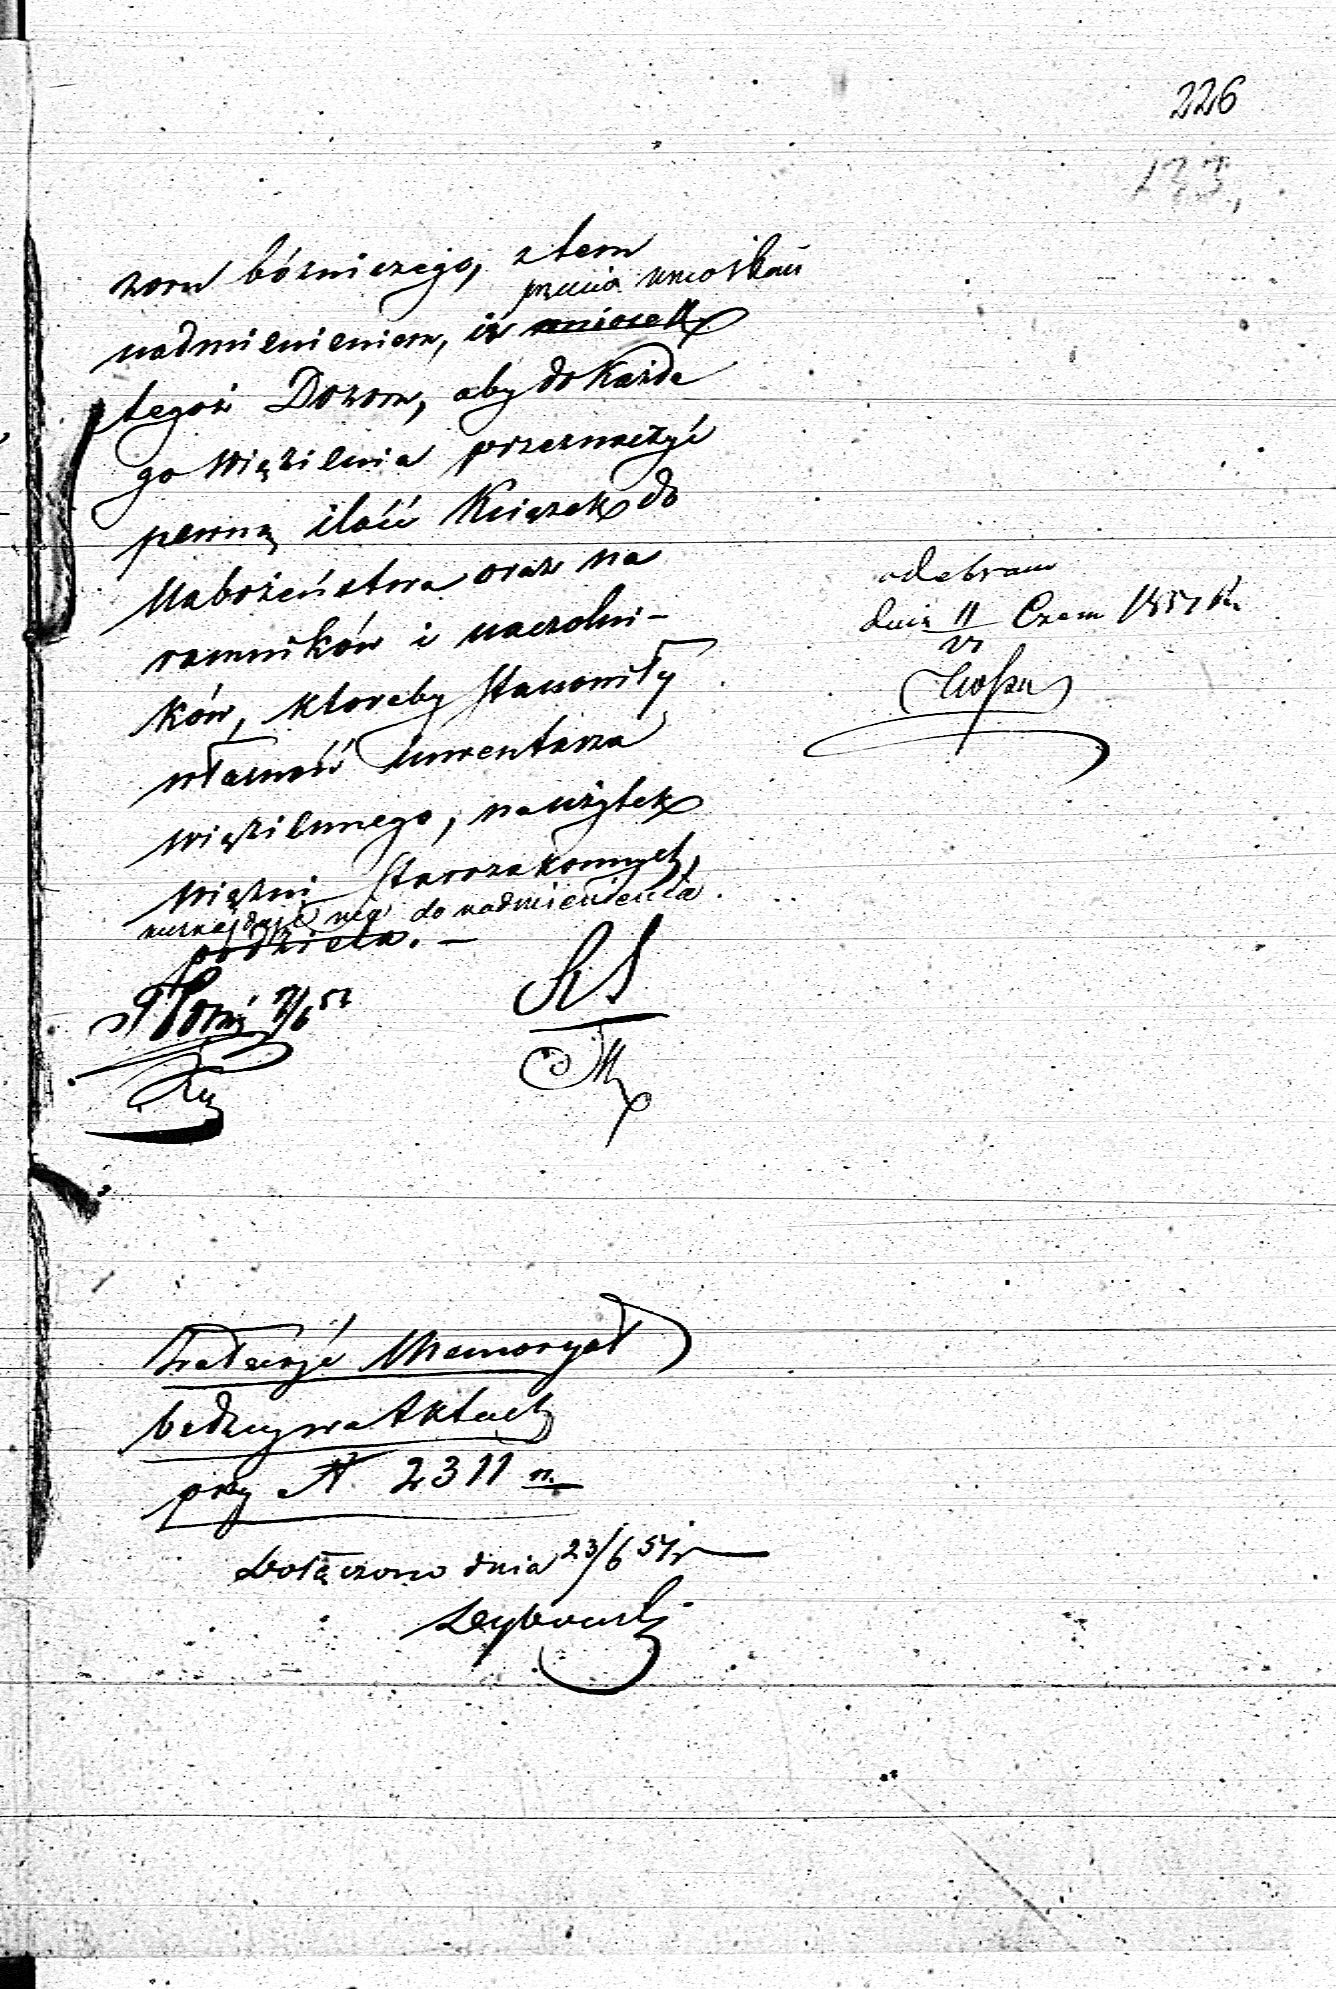 226
133,
zoru bóżniczego, z tem
nadmienieniem, iż wniosek
tegoż Dozoru, aby do każde
go więzienia przeznaczyć
pewną ilość Książek do
Nabożeństwa oraz na
ramników i naczolni-
ków, któreby stanowiły
własność inwentarza
więziennego, na użytek
więźni Starozakonnych,
do nadmienienia
podziela. —
odebrano
dnia 11 Czerw 1851 R.
VI
Załączyć Memoryał
będący w Aktach
przy N 2311 n.
Dołączono dnia 23/6 51 r